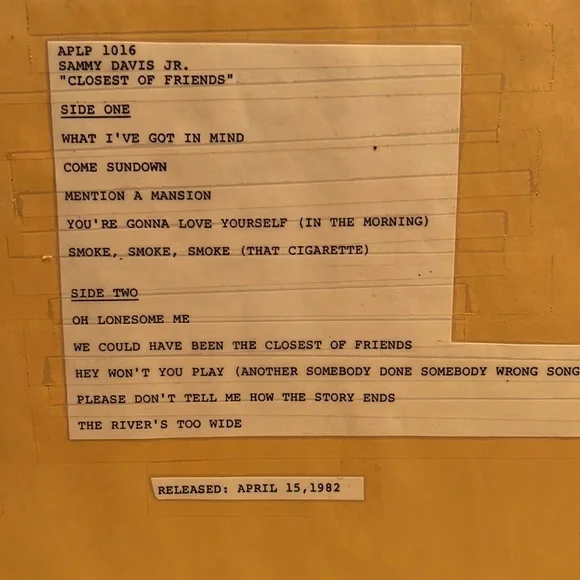 APLP 1016
SAMMY DAVIS JR.
"CLOSEST OF FRIENDS"
SIDE ONE
WHAT I'VE GOT IN MIND
COME SUNDOWN
MENTION A MANSION
YOU'RE GONNA LOVE YOURSELF (IN THE MORNING)
SMOKE, SMOKE, SMOKE (THAT CIGARETTE)
SIDE TWO
OH LONESOME ME
WE COULD HAVE BEEN THE CLOSEST OF FRIENDS
HEY WON'T YOU PLAY (ANOTHER SOMEBODY DONE SOMEBODY WRONG SONG
PLEASE DON'T TELL ME HOW THE STORY ENDS
THE RIVER'S TOO WIDE
RELEASED: APRIL 15,1982